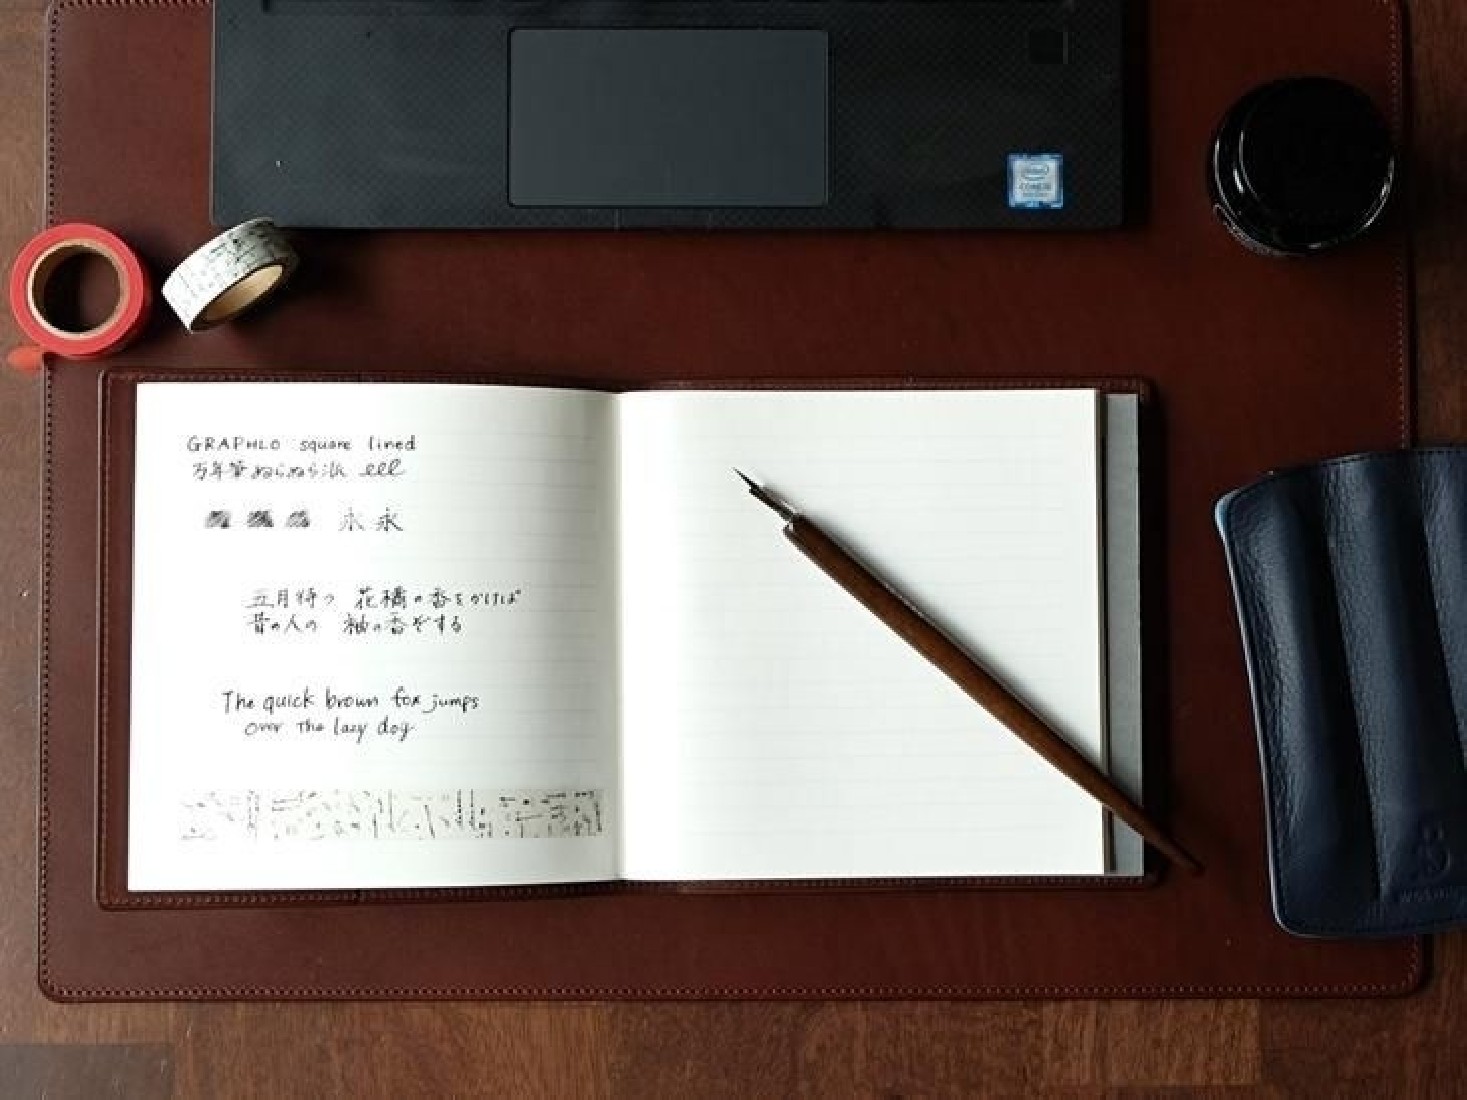 intel
CORE i5
GRAPHLO square lined
万年筆 ぬらぬら派 lll
永 永
五月待つ 花橘の香をかげば
昔の人の 袖の香ぞする
The quick brown fox jumps
over the lazy dog